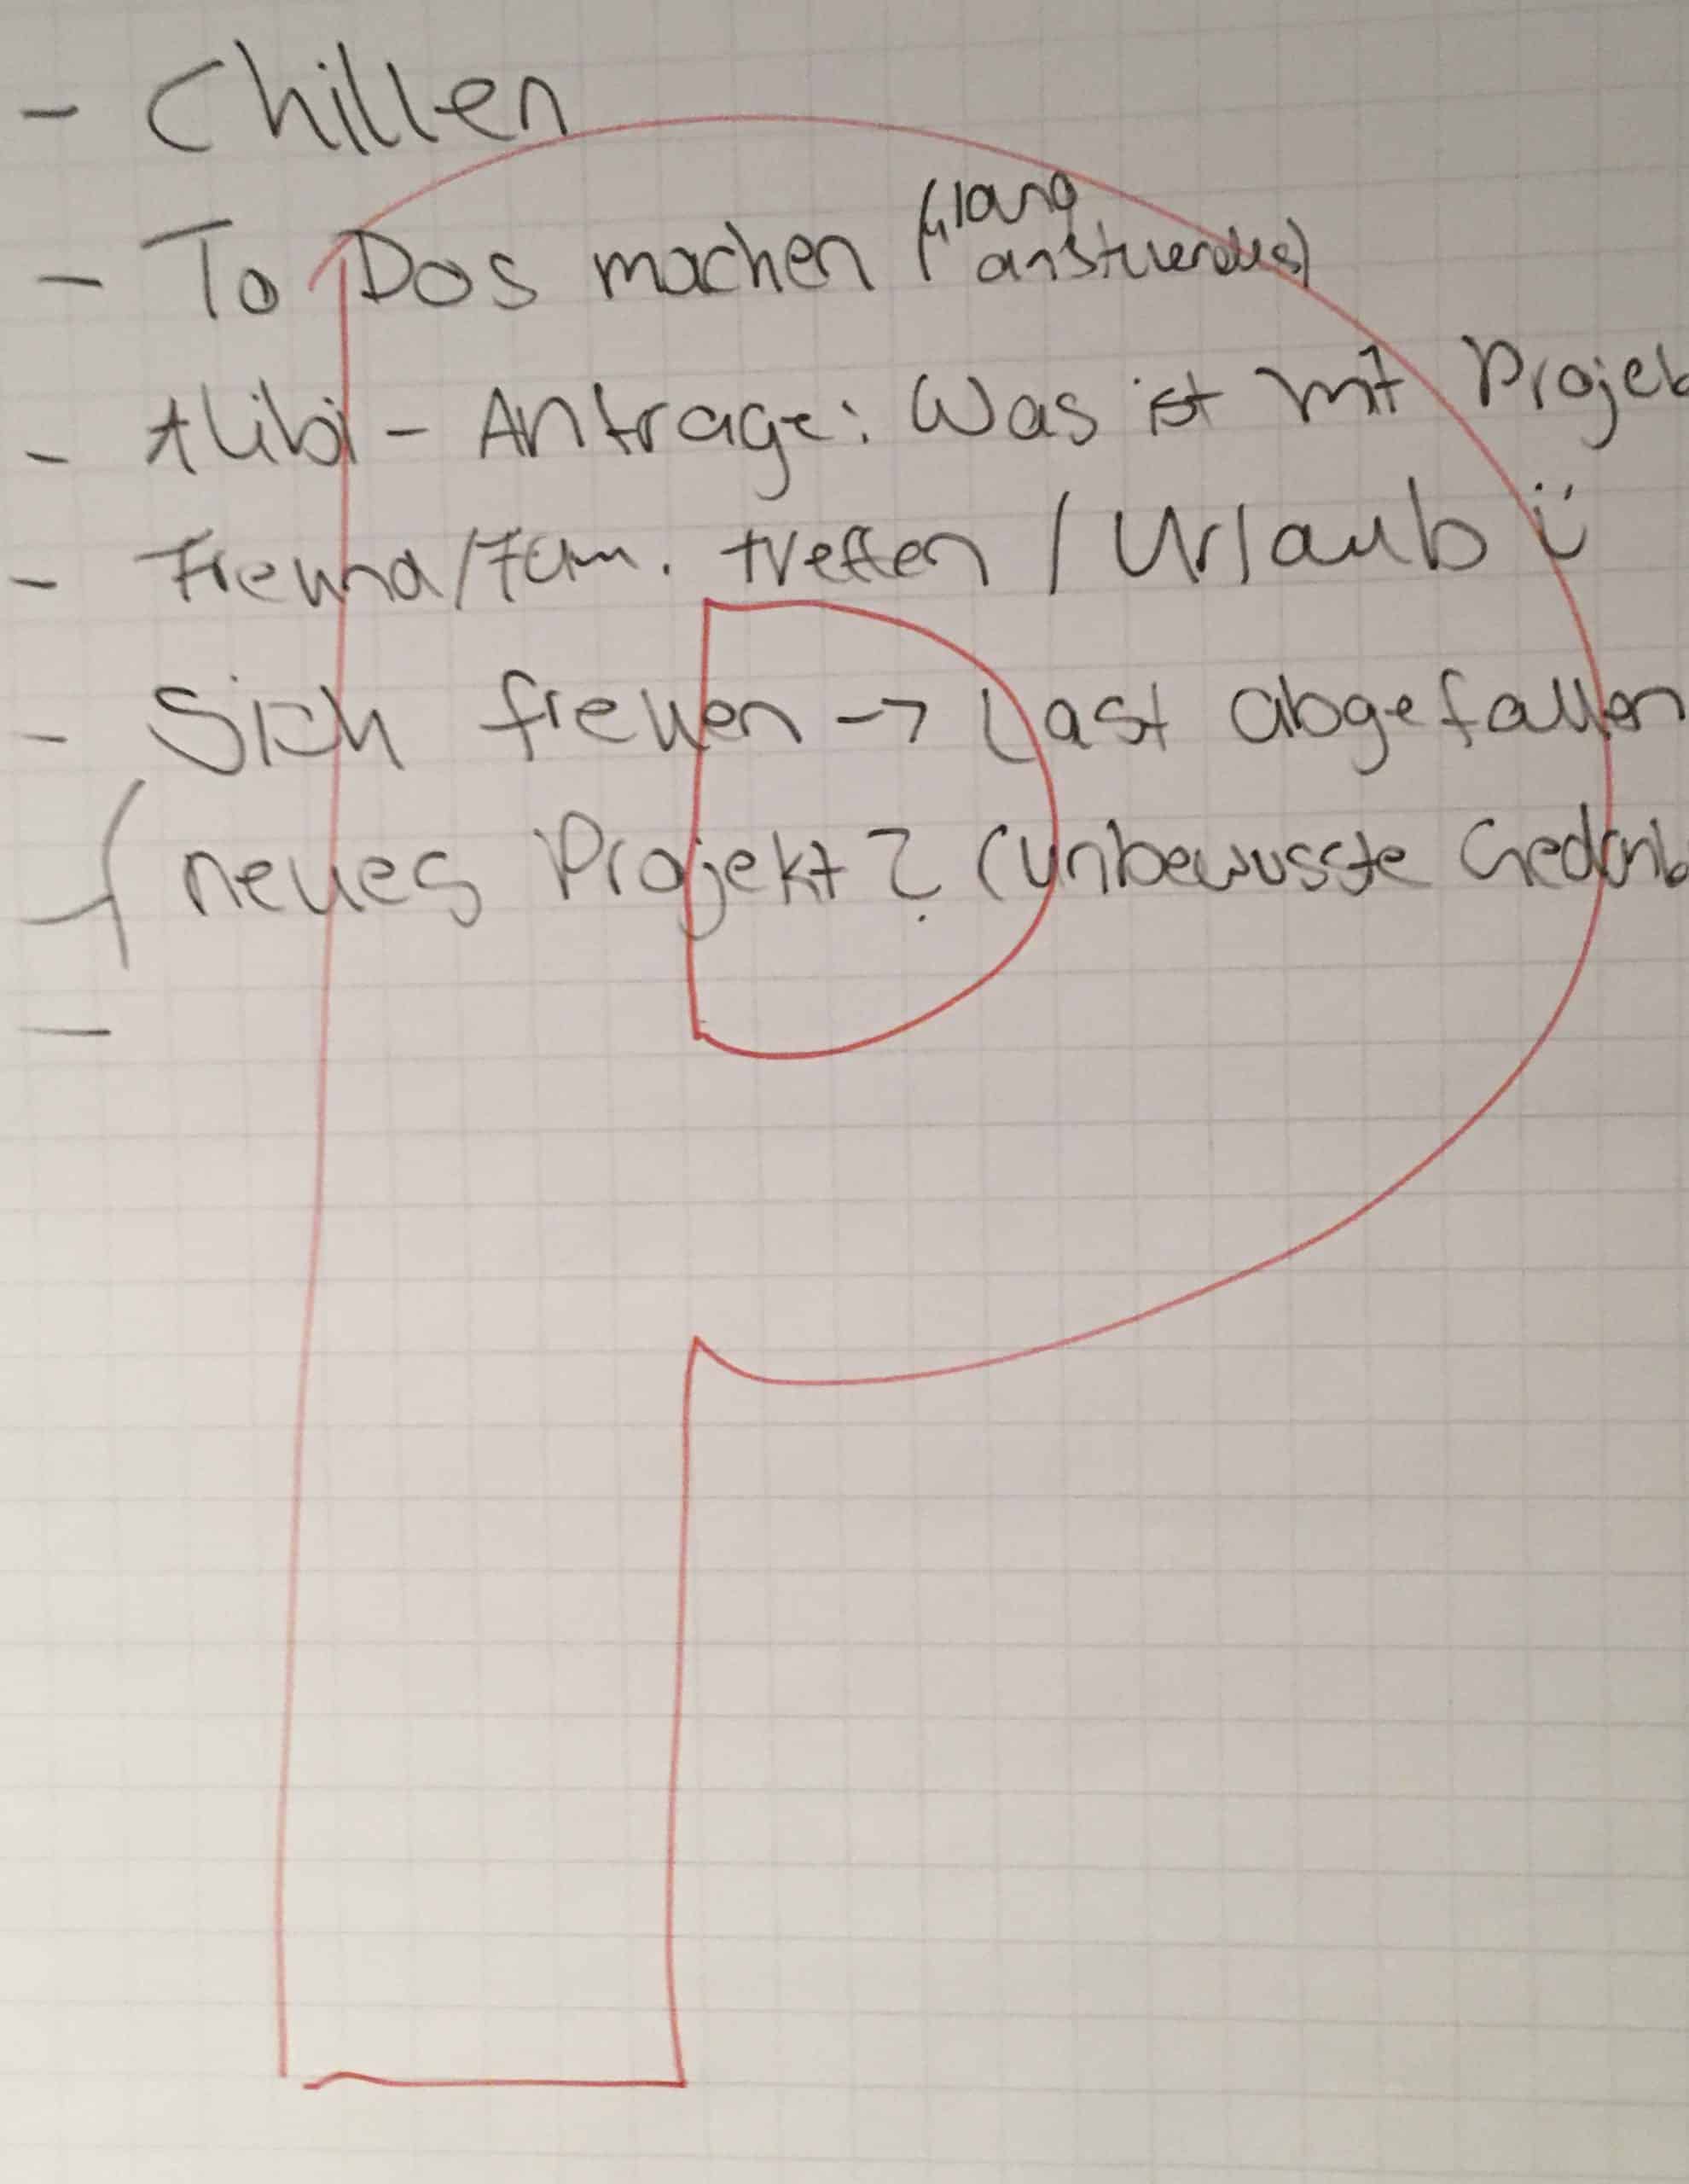 - Chillen
- To Dos machen („lang anstehendes)
- Alibi - Anfrage: Was ist mit Projek
- Freund/Fam. treffen / Urlaub ü
- Sich freuen -> Last abgefallen
neues Projekt? (unbewusste Gedank
-
P